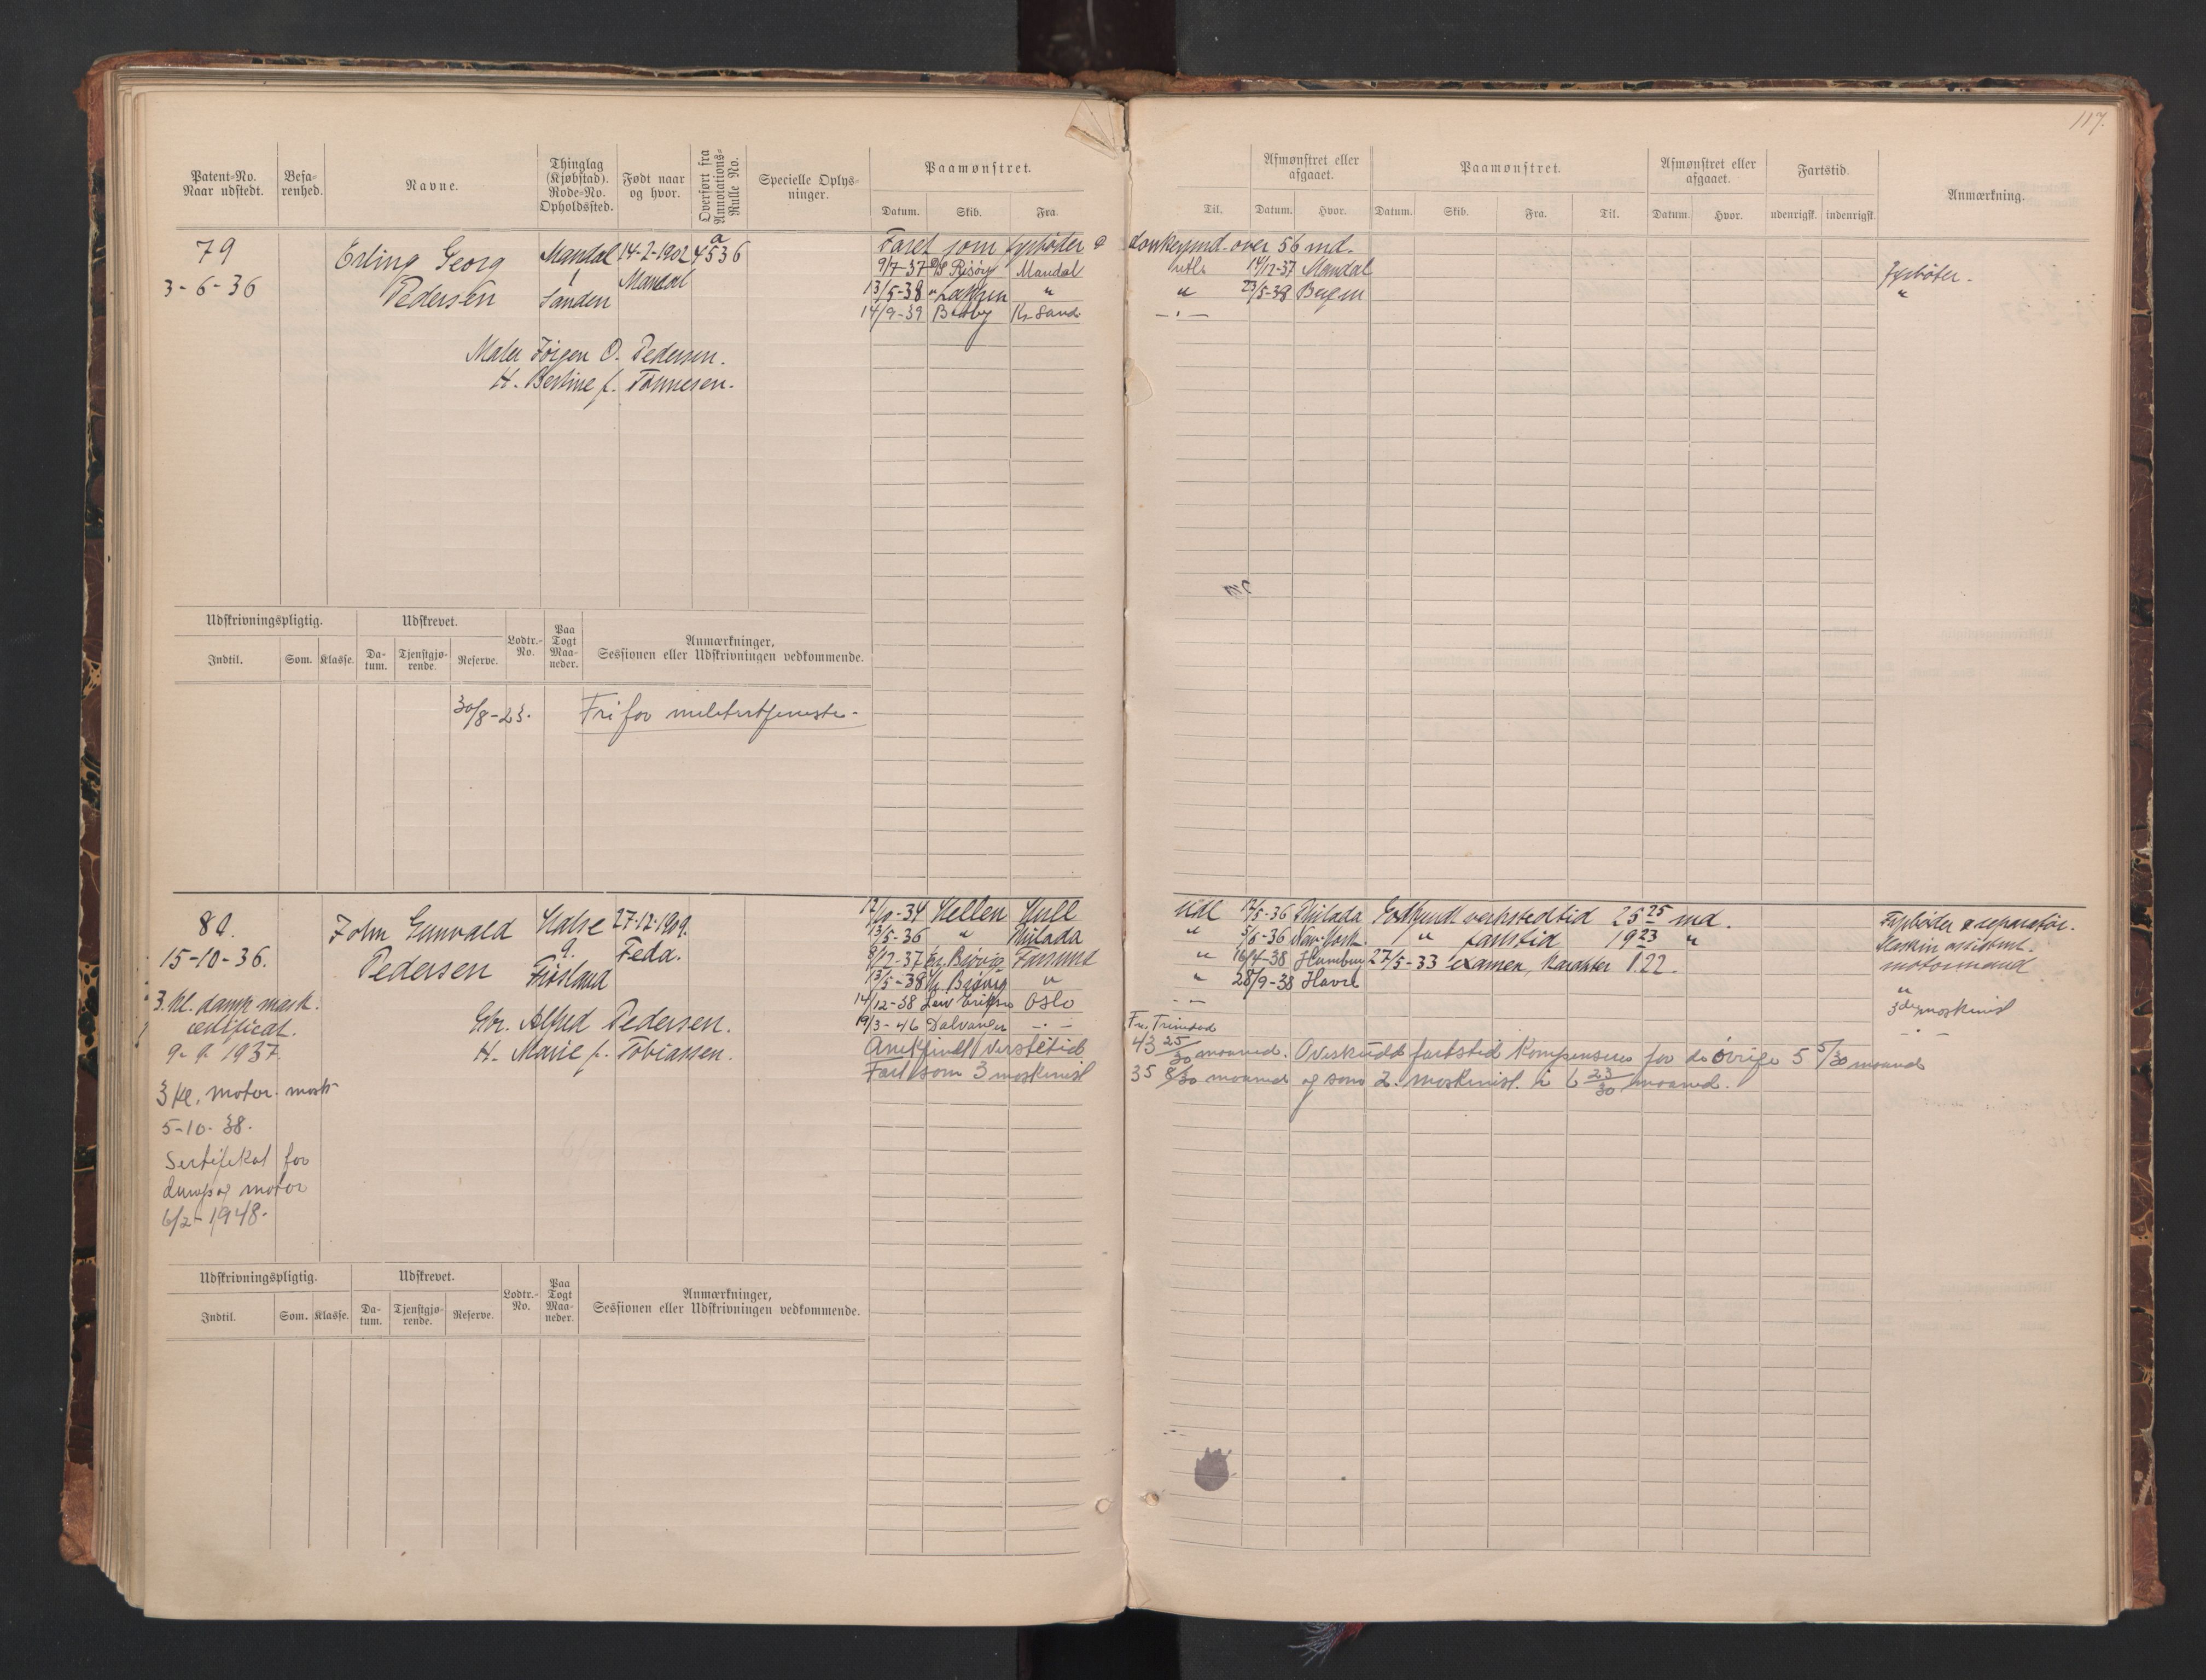 117.
Patent-No. Naar udstedt.
Befarenhed.
Navne.
Thinglag (Kjøbstad). Rode-No. Opholdssted.
Født naar og hvor.
Overført fra Annotations-Rulle No.
Specielle Oplysninger.
Paamønstret.
Datum. Skib. Fra. Til.
Afmønstret eller afgaaet.
Datum. Hvor.
Paamønstret.
Datum. Skib. Fra. Til.
Afmønstret eller afgaaet.
Datum. Hvor.
Fartstid.
udenrigsk. indenrigsk.
Anmærkning.
79 Erling Georg Mandal 14-2-1902 a 4536 Faret som fyrbøter over 56 md.
3-6-36 Pedersen 1 Sanden Mandal
9/7-37 D/S Risøy Mandal utl. 14/12-37 Mandal Fyrbøter.
13/5-38 " " " 23/5-38 Bergen "
14/9-39 Kr. Sand.
Maler Jørgen O. Pedersen.
H. Bertine f. Tønnesen.
Udskrivningspligtig. Udskrevet. Lodtr.-No. Paa Togt Maaneder. Anmærkninger, Sessionen eller Udskrivningen vedkommende.
Indtil. Som. Klasse. Datum. Tjenstgjørende. Reserve.
30/8-23. Fri for militærtjeneste.
80. John Gunvald Halse 27-12-1909. 17/10-34 Hellen Hull Utl 12/5-36 Philada Godkjendt verkstedtid 25 25 md. Fyrbøder & reparatør.
15-10-36. Pedersen 9. Feda. 13/5-36 " Philada " 5/6-36 New-York " fartstid 19 23 " Maskinassistent
8/12-37 Farsund " 16/4-38 Hamburg 27/5-33 examen, Karakter 1.22. motormand
13/5-38 " " 28/9-38 Havre "
3. kl. damp mask. certificat. 14/12-38 Leiv Eriksson Oslo 3die maskinist
9-9-1937 19/3-46 Dalvangen Fra Trinidad
Gbr. Alfred Pedersen.
H. Marie f. Tobiassen.
43 25/30 maaned. Overskudd fartstid kompenseres for de øvrige 5 5/30 maaned
Fart som 3 maskinist 35 8/30 maaned og som 2. maskinist i 6 23/30 maaned.
3 kl. motor. mask
5-10-38.
Sertifikat for
damp og motor
6/2-1948.
Udskrivningspligtig. Udskrevet. Lodtr.-No. Paa Togt Maaneder. Anmærkninger, Sessionen eller Udskrivningen vedkommende.
Indtil. Som. Klasse. Datum. Tjenstgjørende. Reserve.